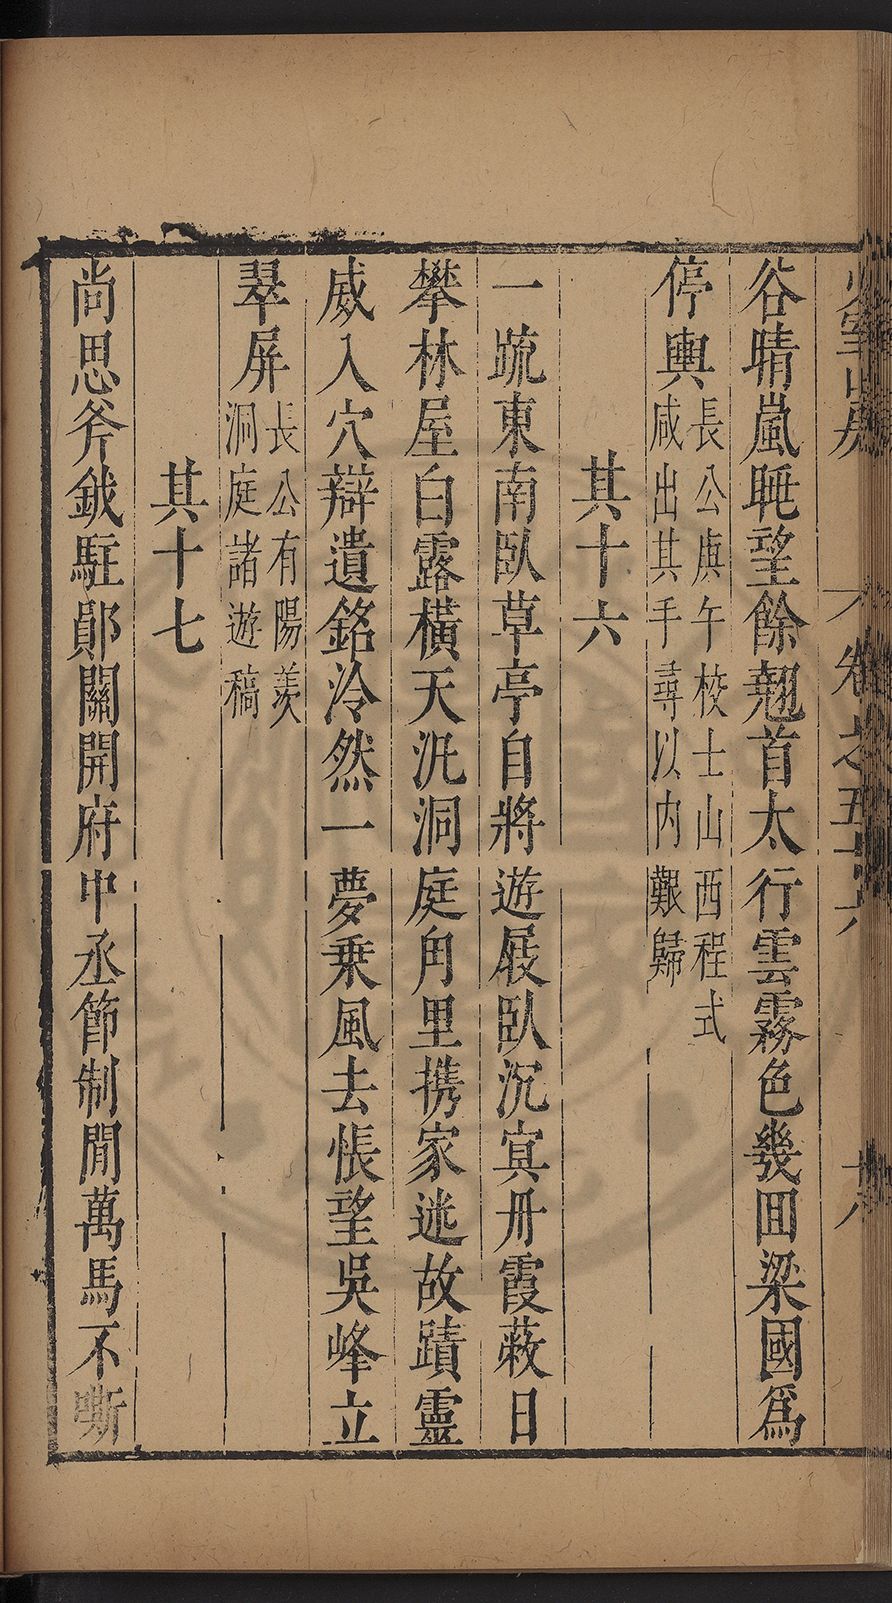 少室山房
卷之五十六
十八
谷晴嵐晀望餘翹首太行雲霧色幾囬梁國爲
停輿
長公庚午校士山西程式
咸出其手尋以内艱歸
其十六
一䟽東南臥草亭自將遊屐臥沉㝠丹霞蔽日
攀林屋白露橫天汎洞庭甪里携家迷故蹟靈
威入穴辯遺銘泠然一夢乗風去悵望吳峰立
翠屏
長公有陽羨
洞庭諸遊稿
其十七
尚思斧鉞駐鄖關開府中丞節制閒萬馬不嘶